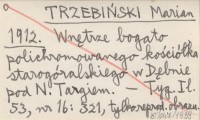 TRZEBIŃSKI Marian
1912. Wnętrze bogato
polichromowanego kościółka
starogóralskiego w Dębnie
pod N. Targiem. — Tyg. Il.
53, nr 16: 321, tylko reprod. obrazu.